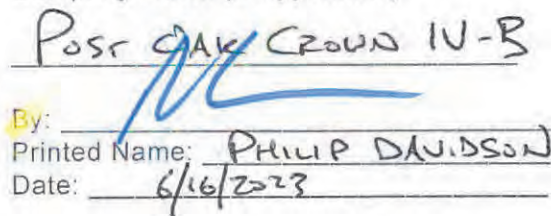 Post OAK CROWN IV-B
By:
Printed Name: PHILIP DAVIDSON
Date: 6/16/2023